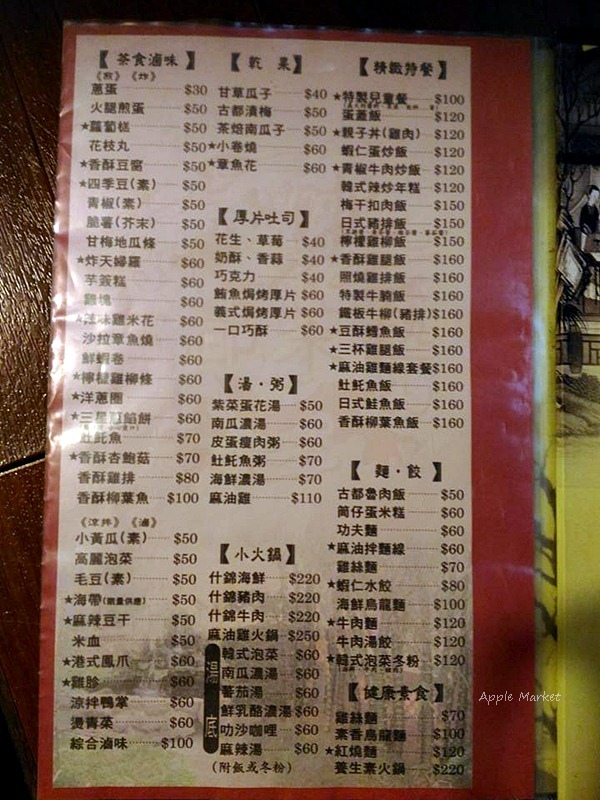 【茶食滷味】
《煎》《炸》
蔥蛋 $30
火腿煎蛋 $50
★蘿蔔糕 $50
花枝丸 $50
★香酥豆窩 $50
★四季豆(素) $50
青椒(素) $50
脆薯(芥末) $50
甘梅地瓜條 $50
★炸天婦羅 $60
芋簽糕 $60
雞塊 $60
★辣味雞米花 $60
沙拉章魚燒 $60
鮮蝦卷 $60
★檸檬雞柳條 $60
★洋蔥圈 $60
★三星蔥餡餅 $60
𩵚魠魚 $70
★香酥杏鮑菇 $70
香酥雞排 $80
香酥柳葉魚 $100
《涼拌》《滷》
小黃瓜(素) $50
高麗泡菜 $50
毛豆(素) $50
★海帶(限量供應) $50
★麻辣豆干 $50
米血 $50
★港式鳳爪 $60
★雞胗 $60
涼拌鴨掌 $60
燙青菜 $60
綜合滷味 $100
【乾 果】
甘草瓜子 $40
古都漬梅 $50
茶焙南瓜子 $50
★小卷燒 $60
★章魚花 $60
【厚片吐司】
花生、草莓 $40
奶酥、香蒜 $40
巧克力 $40
鮪魚焗烤厚片 $60
義式焗烤厚片 $60
一口巧酥 $60
【湯·粥】
紫菜蛋花湯 $50
南瓜濃湯 $60
皮蛋瘦肉粥 $60
魠魚粥 $70
海鮮濃湯 $70
麻油雞 $110
【小火鍋】
什錦海鮮 $220
什錦豬肉 $220
什錦牛肉 $220
麻油雞火鍋 $250
湯底
韓式泡菜 $60
南瓜濃湯 $60
蕃茄湯 $60
鮮乳酪濃湯 $60
叻沙咖哩 $60
麻辣湯 $60
(附飯或冬粉)
【精緻特餐】
★特製兒童餐 $100
蛋蓋飯 $120
★親子丼(雞肉) $120
蝦仁蛋炒飯 $120
★青椒牛肉炒飯 $120
韓式辣炒年糕 $120
梅干扣肉飯 $150
日式豬排飯 $150
檸檬雞柳飯 $150
★香酥雞腿飯 $160
照燒雞排飯 $160
特製牛腩飯 $160
鐵板牛柳(豬排) $160
★豆酥鱈魚飯 $160
★三杯雞腿飯 $160
★麻油雞麵線套餐 $160
魠魚飯 $160
日式鮭魚飯 $160
香酥柳葉魚飯 $160
【麵·餃】
古都魯肉飯 $50
筒仔蛋米糕 $60
功夫麵 $60
★麻油拌麵線 $60
雞絲麵 $70
★蝦仁水餃 $80
海鮮烏龍麵 $100
★牛肉麵 $120
牛肉湯餃 $120
★韓式泡菜冬粉 $120
【健康素食】
雞絲麵 $70
素香烏龍麵 $100
★紅燒麵 $120
養生素火鍋 $220
Apple Market